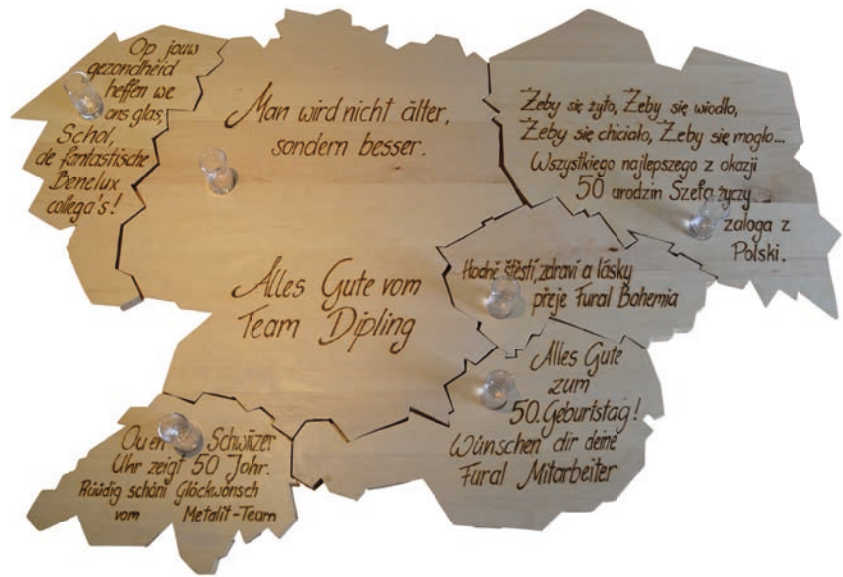 Op jouw
gezondheid
heffen we
ons glas,
Schol,
de fantastische
Benelux
collega's!
Man wird nicht älter,
sondern besser.
Alles Gute vom
Team Dipling
Żeby się żyło, Żeby się wiodło,
Żeby się chiciało, Żeby się mogło...
Wszystkiego najlepszego z okazji
50 urodzin Szefa życzy
załoga z
Polski.
Hodně štěstí, zdraví a lásky
přeje Fural Bohemia
Alles Gute
zum
50. Geburtstag!
Wünschen dir deine
Fural Mitarbeiter
Ou en Schwiizer
Uhr zeigt 50 Johr.
Rüüdig schöni Glöckwönsch
vom Metalit-Team